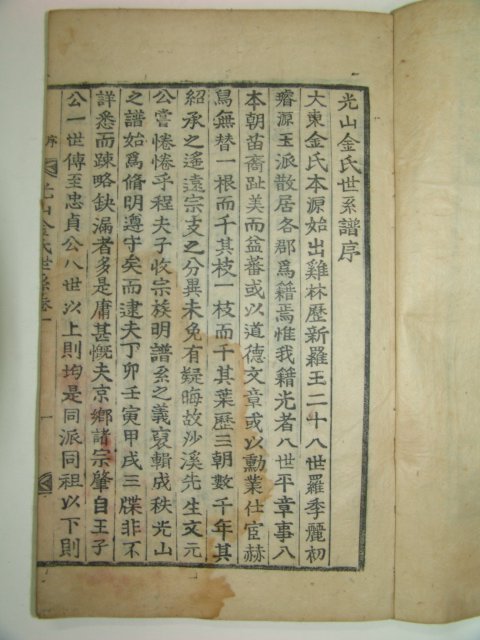 光山金氏世系譜序
大東金氏本源始出雞林歷新羅王二十八世羅季麗初
瘠源王派散居各郡爲籍焉惟我籍光者八世平章事八
本朝苗裔趾美而益蕃或以道德文章或以勳業仕宦赫
舃無替一根而千其枝一枝而千其葉歷三朝數千年其
紹承之遙遠宗支之分異未免有疑晦故沙溪先生文元
公嘗惓惓乎程夫子收宗族明譜系之義裒輯成秩光山
之譜始爲脩明遵守矣而逮夫丁卯壬寅甲戌三牒非不
詳悉而疎略缺漏者多是庸甚慨夫京鄉諸宗肇自王子
公一世傳至忠貞公八世以上則均是同派同祖以下則
序 光山金氏世系卷一 一